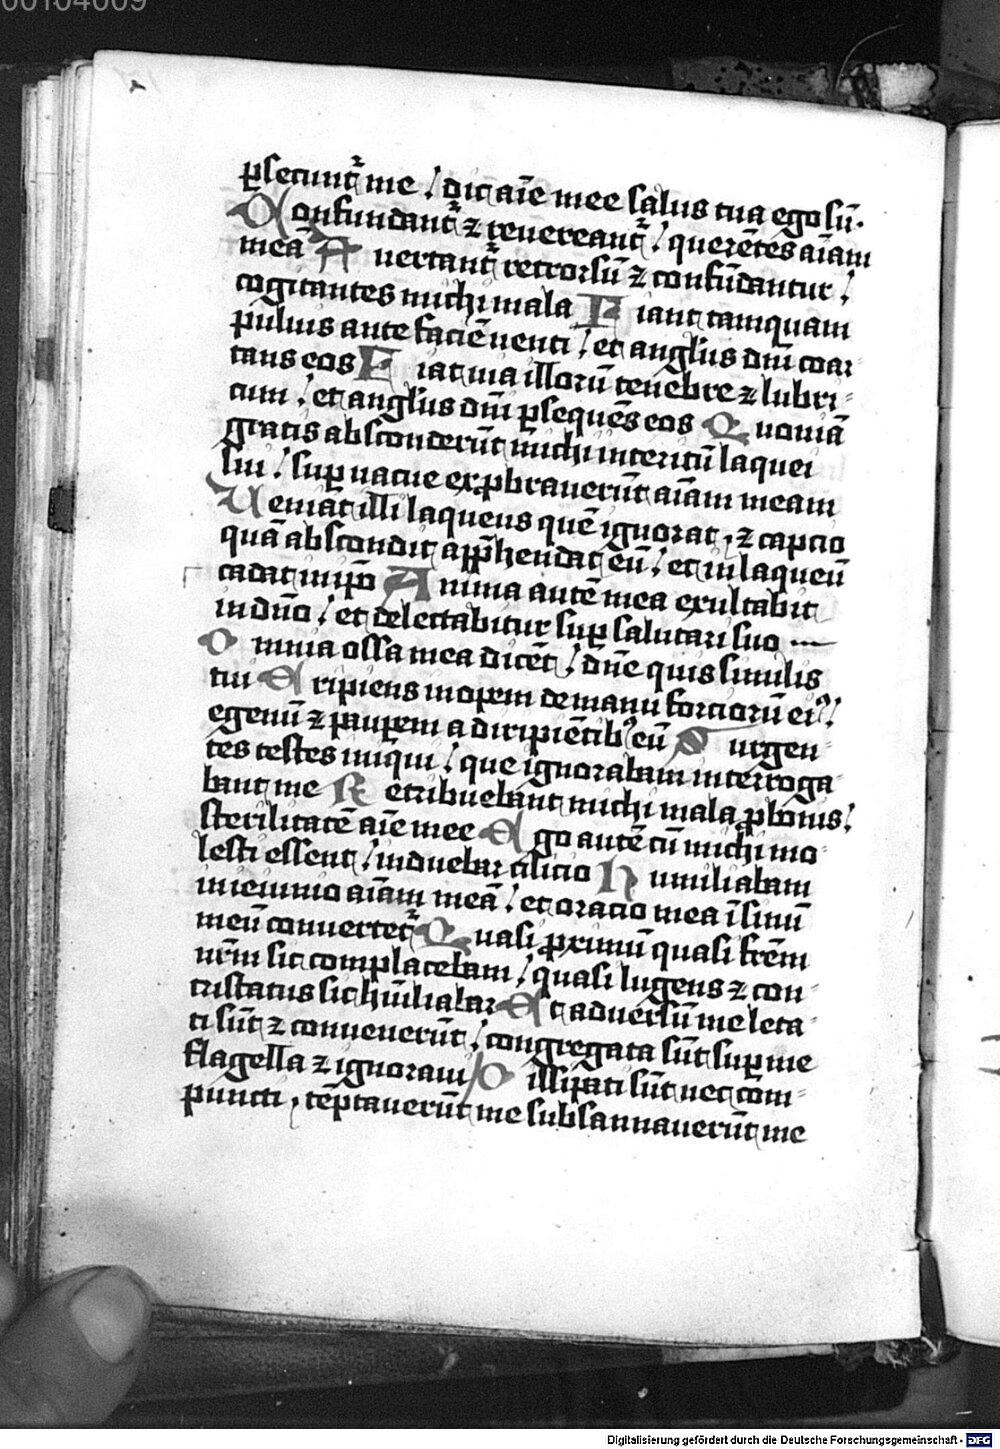 00104009
ꝑsecunt᷑ me / dic aīe mee salus tua ego sū.
Confundant᷑ ⁊ reuereant᷑ / querētes aīam
meā Auertant᷑ retrorsū ⁊ confūdantur /
cogitantes michi mala Fiant tamquam
puluis ante faciē uenti / et angl̄us dn̄i coar-
tans eos Fiat uia illorū tenebre ⁊ lubri-
cum / et angl̄us dn̄i ꝑsequēs eos Quoniā
gratis absconderūt michi interitū laquei
sui / suꝑuacue exꝓbrauerūt aīam meam
Ueniat illi laqueus quē ignorat, ⁊ captio
quā abscondit app̄hendat eū / et in laqueū
cadat in ip̄o Anima autē mea exultabit
in dn̄o / et delectabitur suꝑ salutari suo
Omnia ossa mea dicēt / dn̄e quis similis
tui Eripiens inopem de manu forciorū eiꝰ /
egenū ⁊ pauꝑem a diripiētibꝰ eū Surgen-
tes testes iniqui / que ignorabam interroga-
bant me Retribuebant michi mala ꝓ bonis /
sterilitatē aīe mee Ego autē cū michi mo-
lesti essent / induebar cilicio Humiliabam
in ieiunio aīam meā / et oracio mea ī sinū
meū conuertet᷑ Quasi ꝓximū quasi frēm
nr̄m sic complacebam / quasi lugens ⁊ con-
tristatus sic hūiliabar Et aduersū me leta-
ti sūt ⁊ conuenerūt / congregata sūt suꝑ me
flagella ⁊ ignoraui Dissipati sūt nec com-
puncti, tēptauerūt me subsannauerūt me
Digitalisierung gefördert durch die Deutsche Forschungsgemeinschaft - DFG